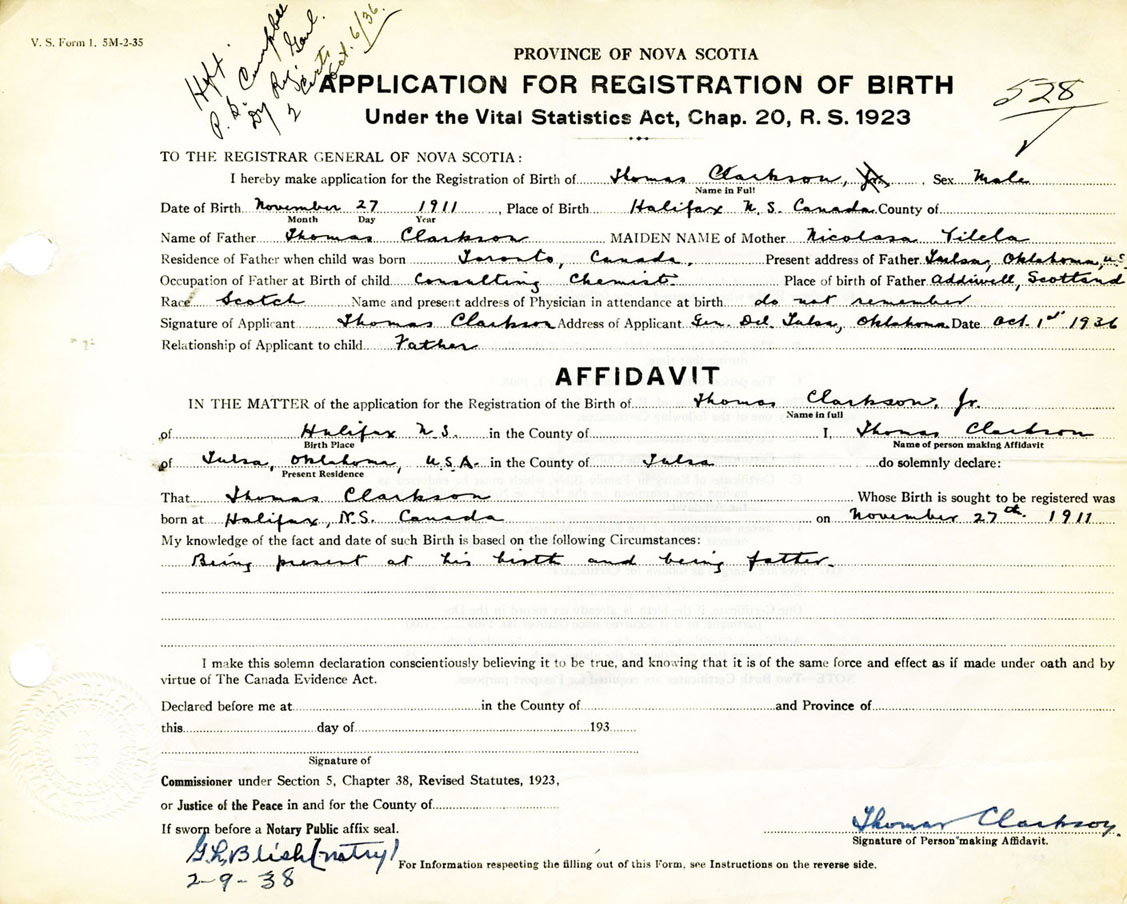 V. S. Form 1. 5M-2-35
Hfx.
P. S. Campbell
Dy Reg. Genl.
2 Certs
Oct. 6/36.
PROVINCE OF NOVA SCOTIA
APPLICATION FOR REGISTRATION OF BIRTH
528
Under the Vital Statistics Act, Chap. 20, R. S. 1923
TO THE REGISTRAR GENERAL OF NOVA SCOTIA:
I hereby make application for the Registration of Birth of Thomas Clarkson, Jr. , Sex Male
Name in Full
Date of Birth November 27 1911 , Place of Birth Halifax N. S. Canada. County of
Month Day Year
Name of Father Thomas Clarkson MAIDEN NAME of Mother Nicolasa Vilela
Residence of Father when child was born Toronto, Canada. Present address of Father Tulsa, Oklahoma, U.S.
Occupation of Father at Birth of child Consulting Chemist. Place of birth of Father Addiewell, Scotland
Race Scotch Name and present address of Physician in attendance at birth do not remember
Signature of Applicant Thomas Clarkson Address of Applicant Gen. Del. Tulsa, Oklahoma Date Oct. 1st 1936
Relationship of Applicant to child Father
AFFIDAVIT
IN THE MATTER of the application for the Registration of the Birth of Thomas Clarkson, Jr.
Name in full
of Halifax N.S. in the County of I, Thomas Clarkson
Birth Place Name of person making Affidavit
of Tulsa, Oklahoma, U.S.A. in the County of Tulsa do solemnly declare:
Present Residence
That Thomas Clarkson Whose Birth is sought to be registered was
born at Halifax, N.S. Canada on November 27th 1911
My knowledge of the fact and date of such Birth is based on the following Circumstances:
Being present at his birth and being father.
I make this solemn declaration conscientiously believing it to be true, and knowing that it is of the same force and effect as if made under oath and by
virtue of The Canada Evidence Act.
Declared before me at in the County of and Province of
this day of 193
Signature of
Commissioner under Section 5, Chapter 38, Revised Statutes, 1923,
or Justice of the Peace in and for the County of
If sworn before a Notary Public affix seal.
Thomas Clarkson.
Signature of Person making Affidavit.
G.R. Blish (notry)
For Information respecting the filling out of this Form, see Instructions on the reverse side.
2-9-38